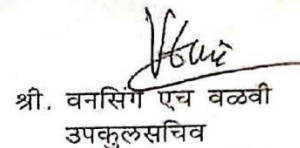 श्री. वनसिंग एच वळवी
उपकुलसचिव